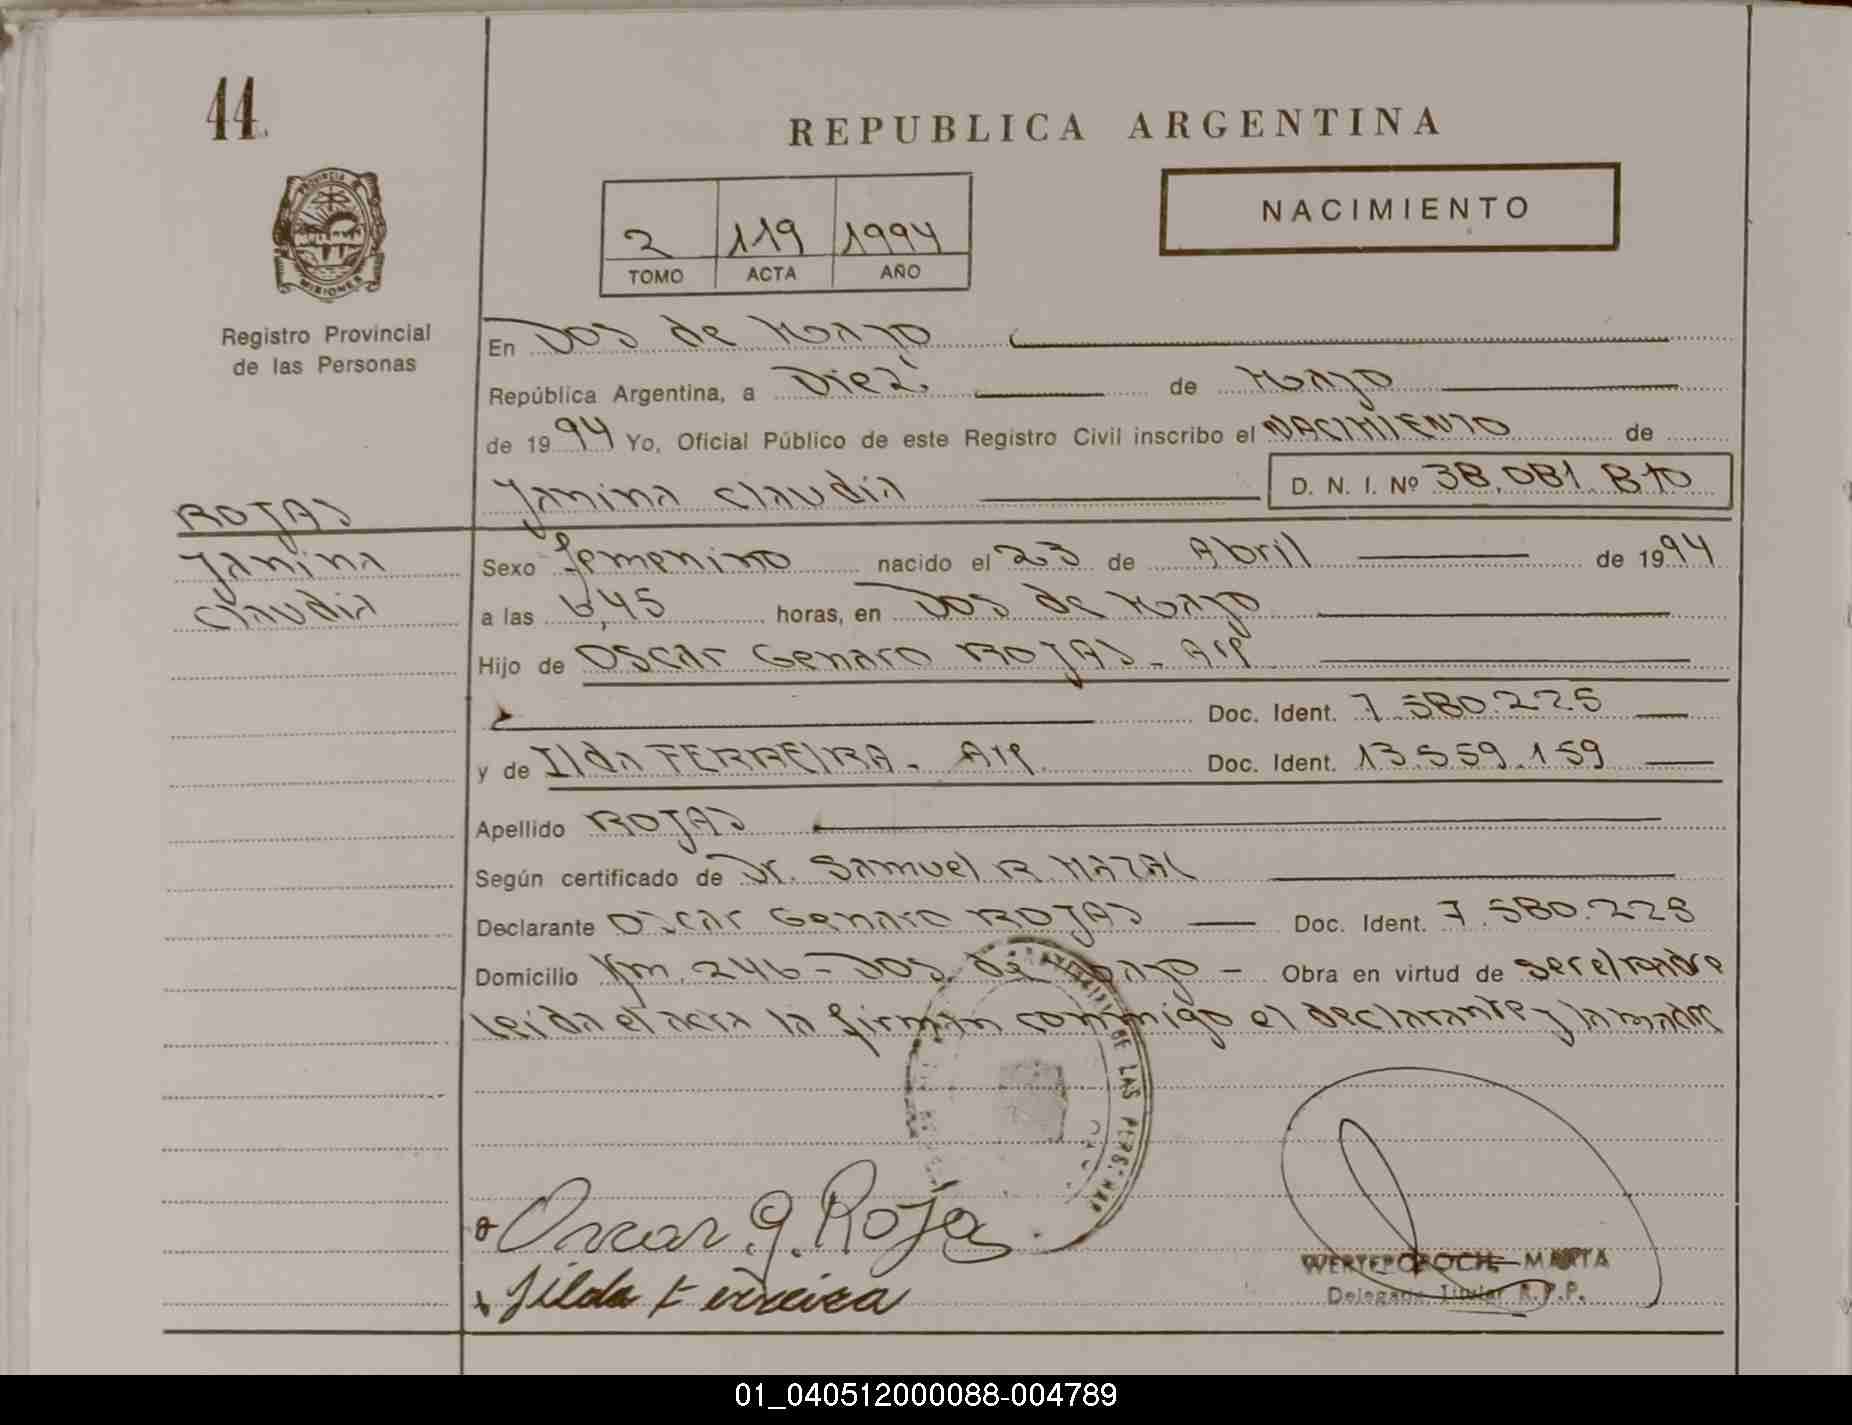 44
REPUBLICA ARGENTINA
PROVINCIA
MISIONES
Registro Provincial
de las Personas
NACIMIENTO
2 119 1994
TOMO ACTA AÑO
En Dos de Mayo
República Argentina, a Diez de Mayo
de 1994 Yo, Oficial Público de este Registro Civil inscribo el NACIMIENTO de
Yanina Claudia D. N. I. Nº 38.081.870
ROJAS
Yanina
Claudia
Sexo femenino nacido el 23 de Abril de 1994
a las 6,45 horas, en Dos de Mayo
Hijo de Oscar Genaro ROJAS - Arg
Doc. Ident. 7.580.225
y de Ilda FERREIRA - Arg Doc. Ident. 13.559.159
Apellido ROJAS
Según certificado de Dr. Samuel R MAZAL
Declarante Oscar Genaro ROJAS Doc. Ident. 7.580.225
Domicilio Km. 246 - Dos de Mayo - Obra en virtud de ser el padre
leida el acta la firman conmigo el declarante y la madre
DE LAS PERS.
Oscar G. Rojas
Jilda Ferreira
MARTA
Delegada Titular R.P.P.
01_040512000088-004789